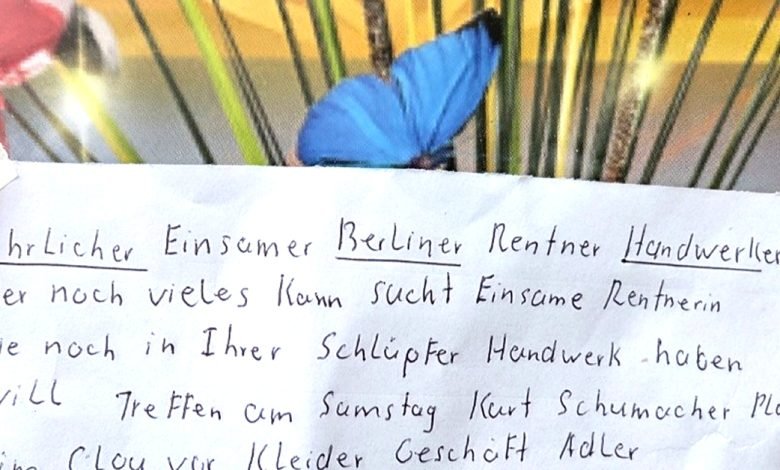 hrLicher Einsamer Berliner Rentner Handwerker
er noch vieles Kann sucht Einsame Rentnerin
e noch in Ihrer Schlüpfer Handwerk haben
will Treffen am Samstag Kurt Schumacher Pla
im Clou vor Kleider Geschäft Adler